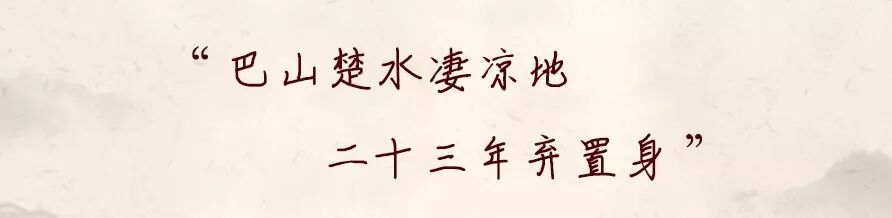 “巴山楚水凄凉地
二十三年弃置身”